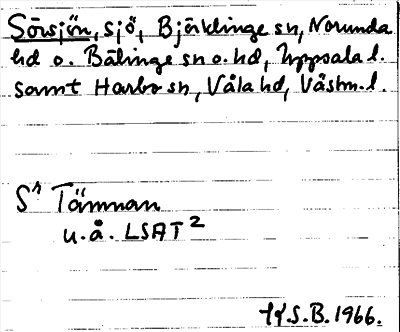 Sörsjön, sjö, Björklinge sn, Norunda
hd o. Bälinge sn o. hd, Uppsala l.
samt Harbo sn, Våla hd, Västm. l.
Sⁿ Tämnan
u.å. LSAT²
S.B. 1966.